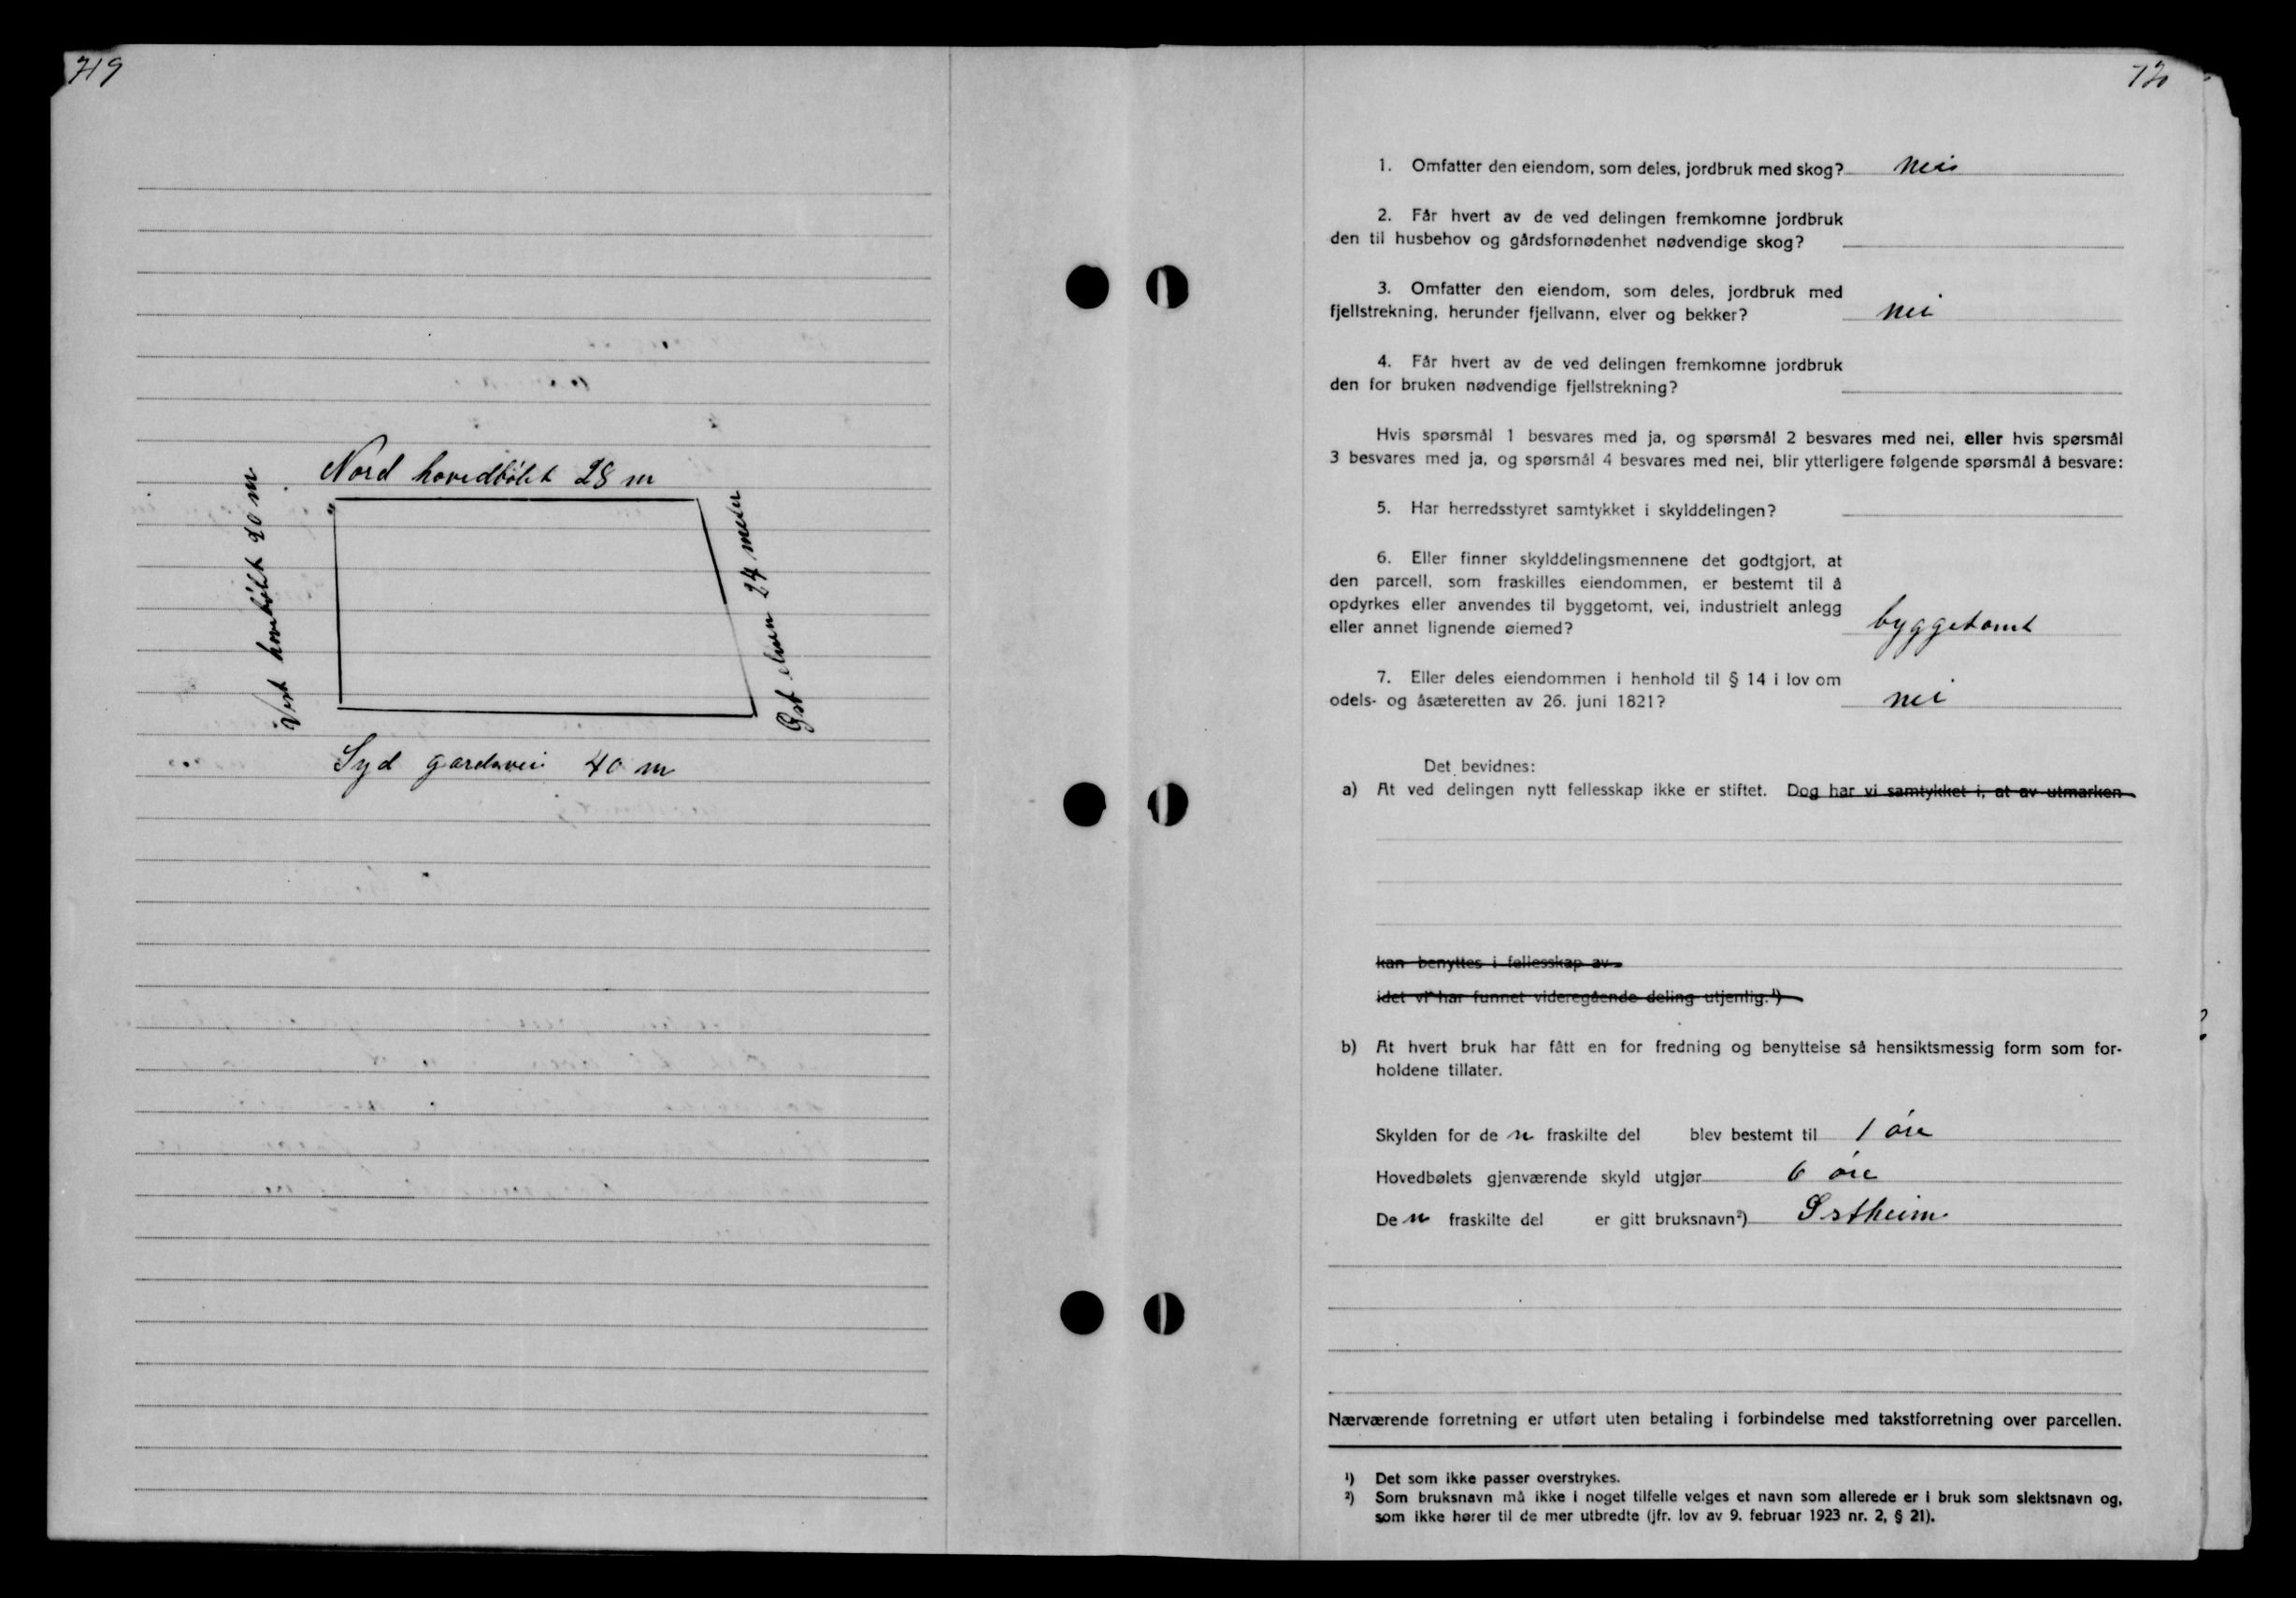 719
Nord hovedbölet 28 m
Vest hovebölet 20 m
Øst elven 24 meter
Syd gardsvei 40 m
720
1. Omfatter den eiendom, som deles, jordbruk med skog? nei
2. Får hvert av de ved delingen fremkomne jordbruk
den til husbehov og gårdsfornødenhet nødvendige skog?
3. Omfatter den eiendom, som deles, jordbruk med
fjellstrekning, herunder fjellvann, elver og bekker? nei
4. Får hvert av de ved delingen fremkomne jordbruk
den for bruken nødvendige fjellstrekning?
Hvis spørsmål 1 besvares med ja, og spørsmål 2 besvares med nei, eller hvis spørsmål
3 besvares med ja, og spørsmål 4 besvares med nei, blir ytterligere følgende spørsmål å besvare:
5. Har herredsstyret samtykket i skylddelingen?
6. Eller finner skylddelingsmennene det godtgjort, at
den parcell, som fraskilles eiendommen, er bestemt til å
opdyrkes eller anvendes til byggetomt, vei, industrielt anlegg
eller annet lignende øiemed? byggetomt
7. Eller deles eiendommen i henhold til § 14 i lov om
odels- og åsæteretten av 26. juni 1821? nei
Det bevidnes:
a) At ved delingen nytt fellesskap ikke er stiftet. Dog har vi samtykket i, at av utmarken
kan benyttes i fellesskap av
idet vi har funnet videregående deling utjenlig.¹)
b) At hvert bruk har fått en for fredning og benyttelse så hensiktsmessig form som for-
holdene tillater.
Skylden for de n fraskilte del blev bestemt til 1 öre
Hovedbølets gjenværende skyld utgjør 6 öre
De n fraskilte del er gitt bruksnavn²) Østheim
Nærværende forretning er utført uten betaling i forbindelse med takstforretning over parcellen.
¹) Det som ikke passer overstrykes.
²) Som bruksnavn må ikke i noget tilfelle velges et navn som allerede er i bruk som slektsnavn og,
som ikke hører til de mer utbredte (jfr. lov av 9. februar 1923 nr. 2, § 21).